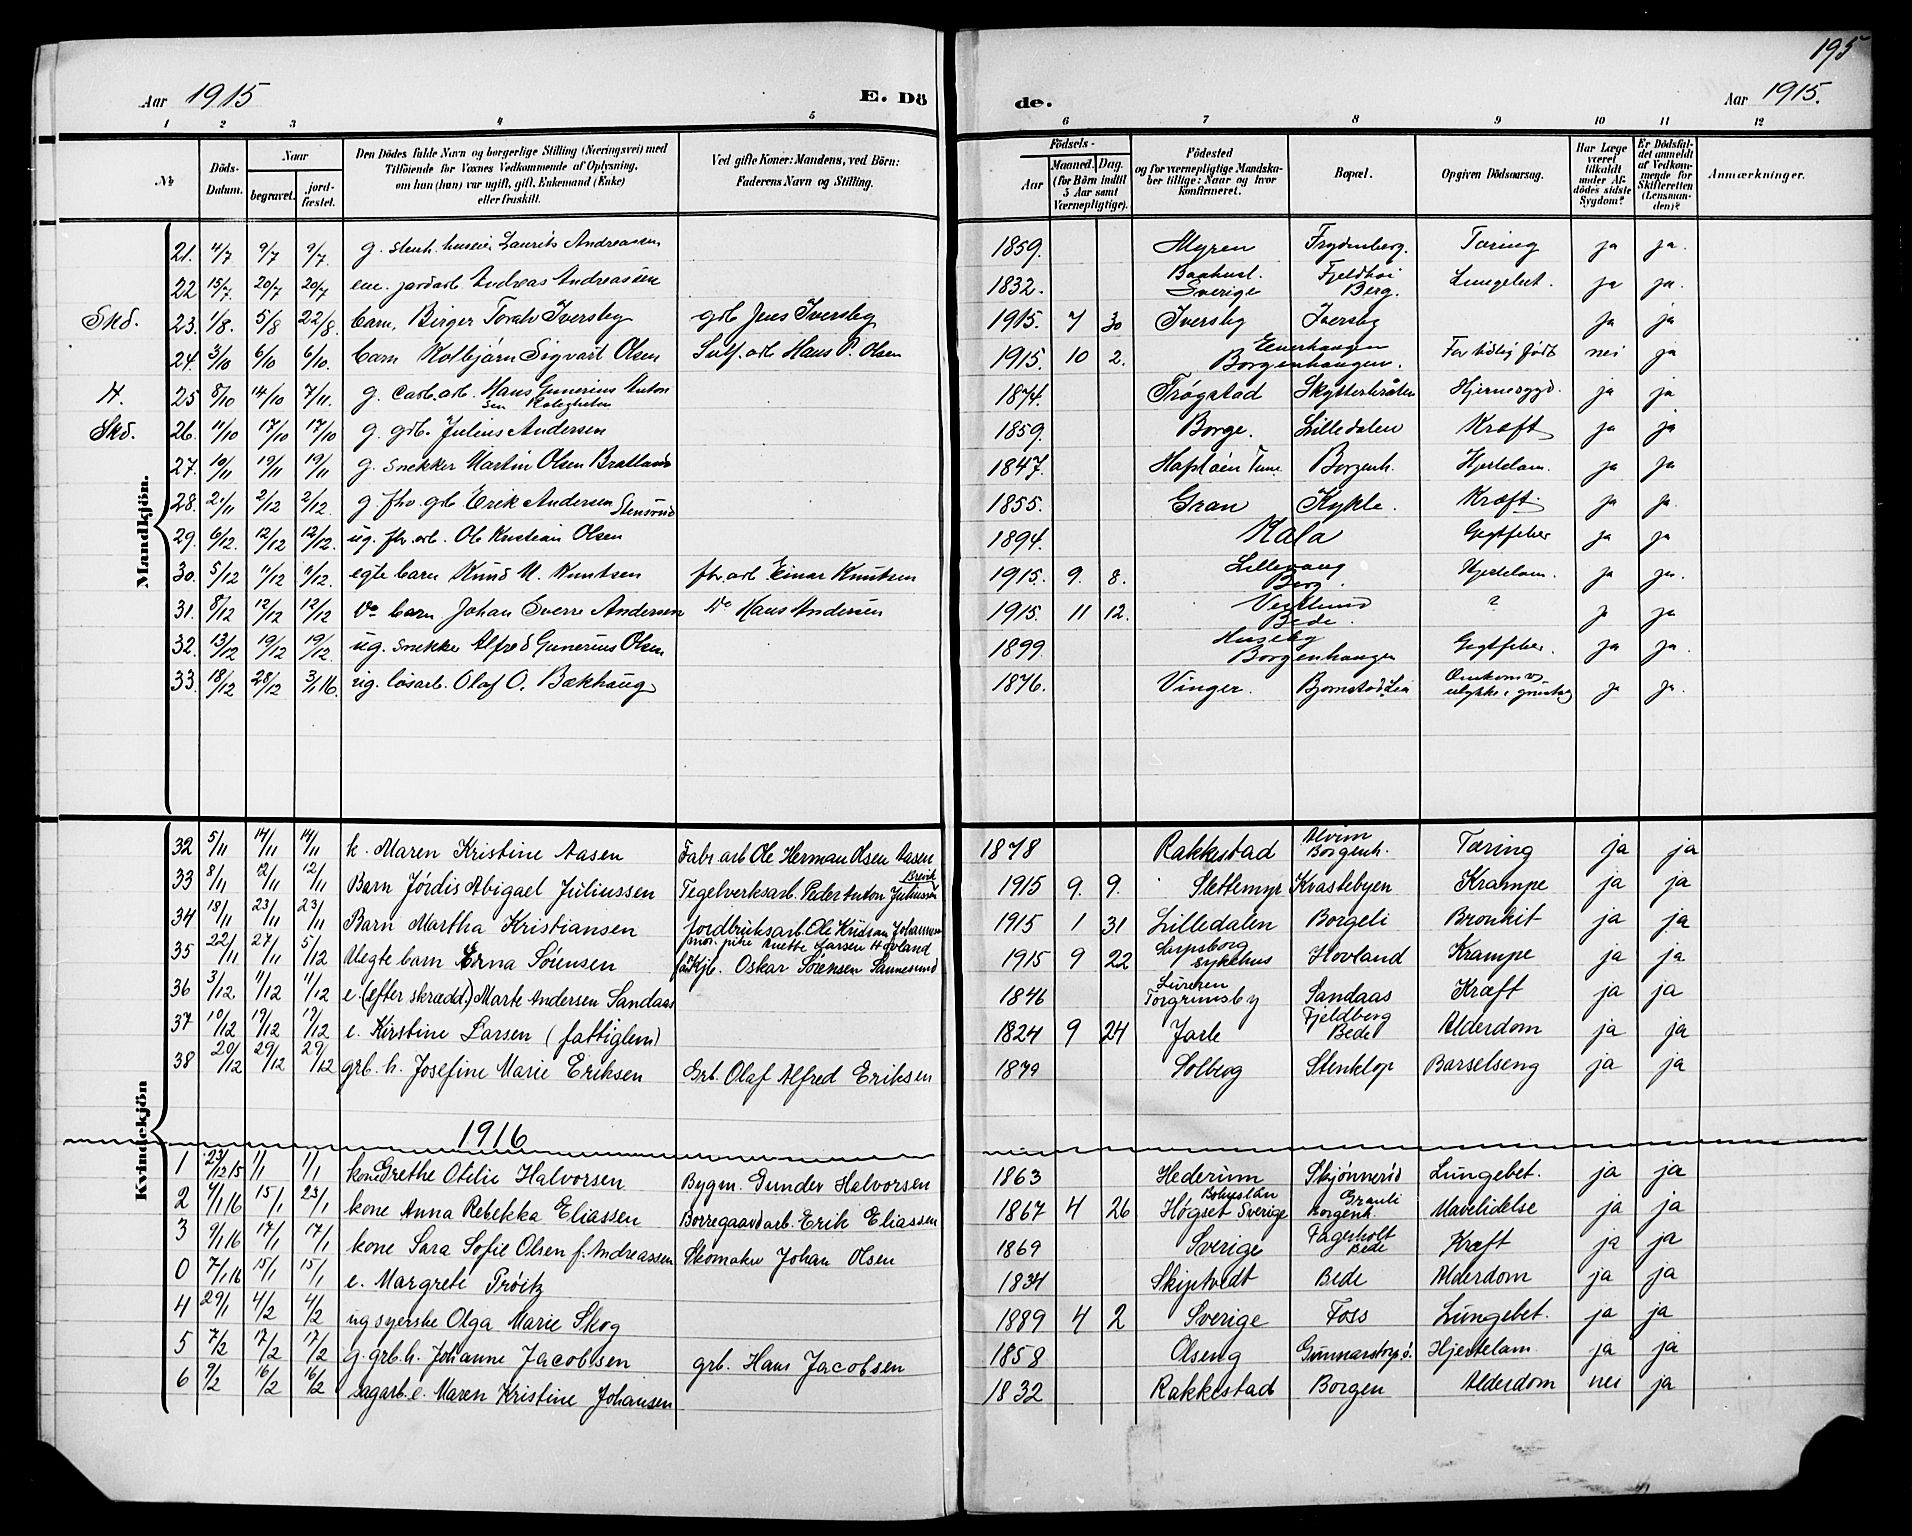 195
Aar 1915 E. Dö de. Aar 1915.
1 2 3 4 5 6 7 8 9 10 11 12
No
Döds-Datum.
Naar
begravet.
jord-fæstet.
Den Dödes fulde Navn og borgerlige Stilling (Næringsvei) med
Tilföiende for Voxnes Vedkommende af Oplysning,
om han (hun) var ugift, gift, Enkemand (Enke)
eller fraskilt.
Ved gifte Koner: Mandens, ved Börn:
Faderens Navn og Stilling.
Födsels-
Aar
Maaned. Dag.
(for Börn indtil
5 Aar samt
Værnepligtige).
Födested
og for værnepligtige Mandska-
ber tillige: Naar og hvor
konfirmeret.
Bopæl.
Opgiven Dödsaarsag.
Har Læge
været
tilkaldt
under Af-
dödes sidste
Sygdom?
Er Dödsfal-
det anmeldt
af Vedkom-
mende for
Skifteretten
(Lensman-
den)?
Anmærkninger.
Mandkjön.
21. 4/7 9/7 9/7. g. stenh. huseier Laurits Andreassen 1859. Myren Frydenberg. Tæring ja ja.
22 15/7. 20/7 20/7 em. jordarb. Andreas Andreassen 1832. Baahusl. Sverige Fjeldhoi Berg. Lungebet. ja ja.
Skd. 23. 1/8. 5/8 22/8. barn, Birger Toralv Iversby gdb Jens Iversby 1915. 7 30 Iversby Iversby ja ja
24. 3/10 6/10 6/10. barn Kolbjørn Sigvart Olsen Sulf. arb Hans P. Olsen 1915. 10 2. Borgenhaugen. For tidlig født nei ja
H. 25 8/10 14/10 7/11. g. Carb. arb. Hans Gunerius Antonsen 1874. Trøgstad Hjernesygd. ja ja
Skd. 26. 11/10 17/10 17/10 g. gdb. Julius Andersen 1859. Borge. Lilledalen Kræft ja ja
27. 10/11 19/11 19/11 g. snekker Martin Olsen Bratland 1847. Borgenh. Hjertelam. ja ja
28. 2/12 2/12. g. fhv. gdb Erik Andersen 1855. Gran Kykle. Kræft ja ja.
29. 6/12. 12/12 12/12. ug. fbr. arb. Ole Kristian Olsen 1894. Kala Gigtfeber ja ja
30. 5/12 11/12 11/12. egte barn Knud M. Knutsen fbr. arb Einar Knutsen 1915. 9. 8. Lillevang Berg. Hjertelam. ja ja.
31. 8/12 12/12 12/12 do barn Johan Sverre Andersen do Hans Andersen 1915. 11 12. Bede. ? ja ja
32. 13/12 19/12 19/12 ug. snekker Alfred Gunerius Olsen 1899. Huseby Borgenhaugen Gigtfeber. ja ja.
33. 18/12 28/12 3/1 16. ug. løsarb. Olaf O. Bækhaug 1876. Vinger. Bjornstad Lia ja ja.
Kvindekjön
32 5/11 14/11 14/11 k. Maren Kristine Aasen Fabr. arb Ole Herman Olsen Aasen 1878 Rakkestad Alvim Borgenh. Tæring ja ja
33 8/11 12/11 12/11 Barn Jórdis Abigael Juliussen Tegelverksarb. Peder Anton Juliussen Brevik 1915 9. 9. Slettemyr Kvastebyen Krampe ja ja
34 18/11 23/11 23/11 Barn Martha Kristiansen Jordbruksarb. Ole Kristian Johannsen 1915 1 31 Lilledalen Borgeli Bronkit ja ja
35 22/11 27/11 5/12 Uegte barn Erna Sørensen mor. pike Anette Larsen Hovland
far Kjb. Oskar Sørensen Sannesund 1915 9 22 Sarpsborg sykehus Hovland Krampe ja ja
36 3/12 11/12 11/12 e. (efter skrædd.) Marte Andersen Sandaas 1846 Torgrimsby Sandaas Kræft ja ja
37 10/12 19/12 19/12 e. Kirstine Larsen (fattiglem) 1824 9 24 Jarle Fjeldberg Bede Alderdom ja ja
38 20/12 29/12 29/12 grb. h. Josefine Marie Eriksen Grb. Olaf Alfred Eriksen 1879 Solberg Stenklop Barselseng ja ja
1916
1 23/12 15 1/1 1/1 kone Grethe Otilie Halvorsen Bygm. Gunder Halvorsen 1863 Hederum Skjønnerød Lungebet. ja ja
2 4/1 16 15/1 23/1 kone Anna Rebekka Eliassen Borregaardarb. Erik Eliassen 1867 4 26 Høgset Bohuslän Sverige Grauli Borgenh. Mavelidelse ja ja
3 9/1 16 17/1 17/1 kone Sara Sofie Olsen f. Andreassen Skomaker Johan Olsen 1869 Sverige Fagerholt Bede Kræft ja ja
0 7/1 16 15/1 15/1 e. Margrete Prøitz 1834 Skiptvedt Bede Alderdom ja ja
4 29/1 4/2 4/2 ug syerske Olga Marie Skog 1889 4 2 Sverige Foss Lungebet. ja ja
5 7/2 17/2 17/2 g. grb. h. Johanne Jacobsen grb. Hans Jacobsen 1858 Olseng Gunnarstorp ö. Hjertelam ja ja
6 9/2 16/2 16/2 sagarb. e. Maren Kristine Johansen 1832 Rakkestad Borgen Alderdom nei ja